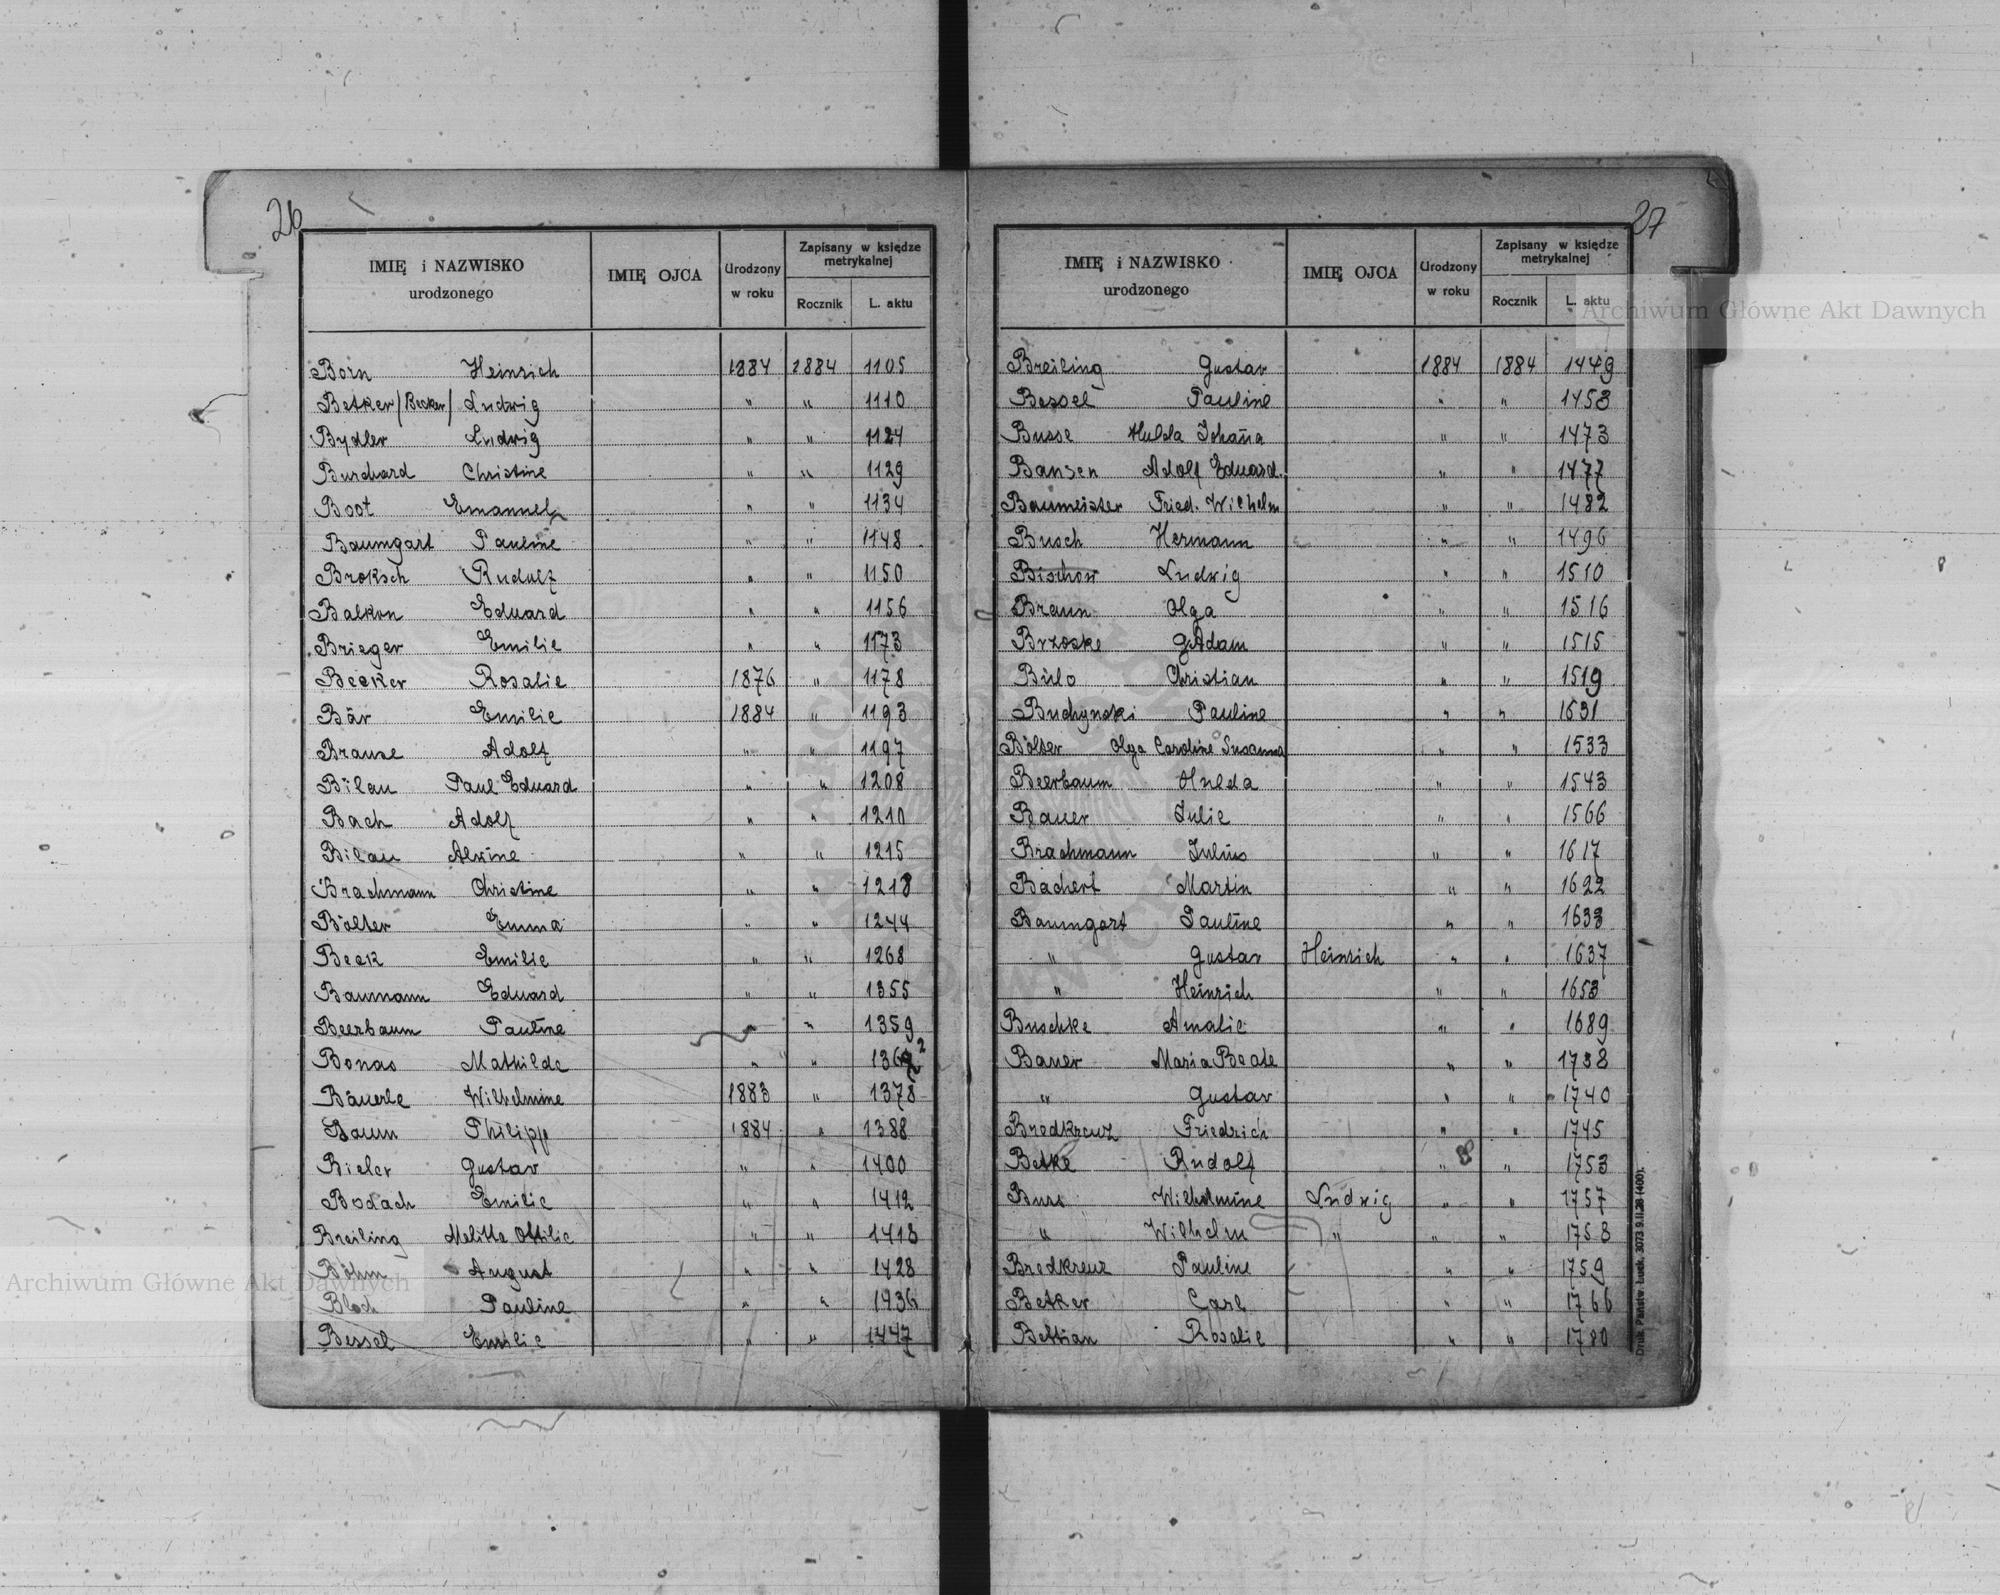 26
IMIĘ i NAZWISKO urodzonego IMIĘ OJCA Urodzony w roku Zapisany w księdze metrykalnej Rocznik L. aktu
Born Heinrich 1884 1884 1105
Betker/Becker/ Ludwig " " 1110
Bydler Ludwig " " 1124
Burchard Christine " " 1129
Boot Emanuel " " 1134
Baumgart Pauline " " 1148
Broksch Rudolf " " 1150
Balkon Eduard " " 1156
Brieger Emilie " " 1173
Becker Rosalie 1876 " 1178
Bär Emilie 1884 " 1193
Brause Adolf " " 1197
Bilau Paul Eduard " " 1208
Bach Adolf " " 1210
Bilau Alwine " " 1215
Brachmann Christine " " 1218
Bölter Emma " " 1244
Beek Emilie " " 1268
Baumann Eduard " " 1355
Beerbaum Pauline " " 1359
Bonas Mathilde " "
Bäuerle Wilhelmine 1883 " 1378
Baum Philipp 1884 " 1388
Bieler Gustav " " 1400
Bodach Emilie " " 1412
Breiling Melitta Ottilie " " 1418
Böhm August " " 1428
Bloch Pauline " " 1436
Bessel Emilie " " 1447
27
IMIĘ i NAZWISKO urodzonego IMIĘ OJCA Urodzony w roku Zapisany w księdze metrykalnej Rocznik L. aktu
Breiling Gustav 1884 1884 1449
Bessel Pauline " " 1458
Busse Hulda Johana " " 1473
Bansen Adolf Eduard. " " 1477
Baumeister Fried. Wilhelm " " 1482
Busch Hermann " " 1496
Bischow Ludwig " " 1510
Braun Olga " " 1516
Brzoske Adam " " 1515
Bülo Christian " " 1519
Buchynski Pauline " " 1531
Bölter Olga Caroline Susanna " " 1533
Beerbaum Hulda " " 1543
Bauer Julie " " 1566
Brachmann Julius " " 1617
Bachert Martin " " 1622
Baumgart Pauline " " 1633
" Gustav Heinrich " " 1637
" Heinrich " " 1653
Buschke Amalie " " 1689
Bauer Maria Beate " " 1738
" Gustav " " 1740
Bredkreuz Friedrich " " 1745
Betke Rudolf " " 1753
Buss Wilhelmine Ludwig " " 1757
" Wilhelm " " " 1758
Bredkreuz Pauline " " 1759
Betker Carl " " 1766
Bettian Rosalie " " 1780
Druk. Państw. Łuck. 3073 9.II.28 (400).
Archiwum Główne Akt Dawnych
Archiwum Główne Akt Dawnych